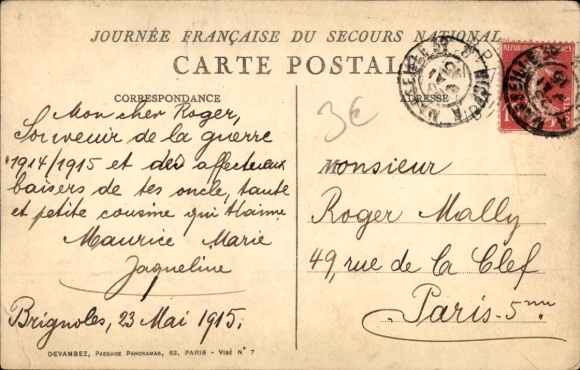 JOURNÉE FRANÇAISE DU SECOURS NATIONAL
CARTE POSTALE
CORRESPONDANCE
ADRESSE
3€
Mon cher Roger,
Souvenir de la guerre
1914/1915 et des affectueux
baisers de tes oncle, tante
et petite cousine qui t'aime
Maurice Marie
Jaqueline
Brignoles, 23 Mai 1915.
Monsieur
Roger Mally
49, rue de la Clef
Paris-5me
MARSEILLE
MARSEILLE
POSTES
DEVAMBEZ, PASSAGE PANORAMAS, 63, PARIS - VISÉ N° 7